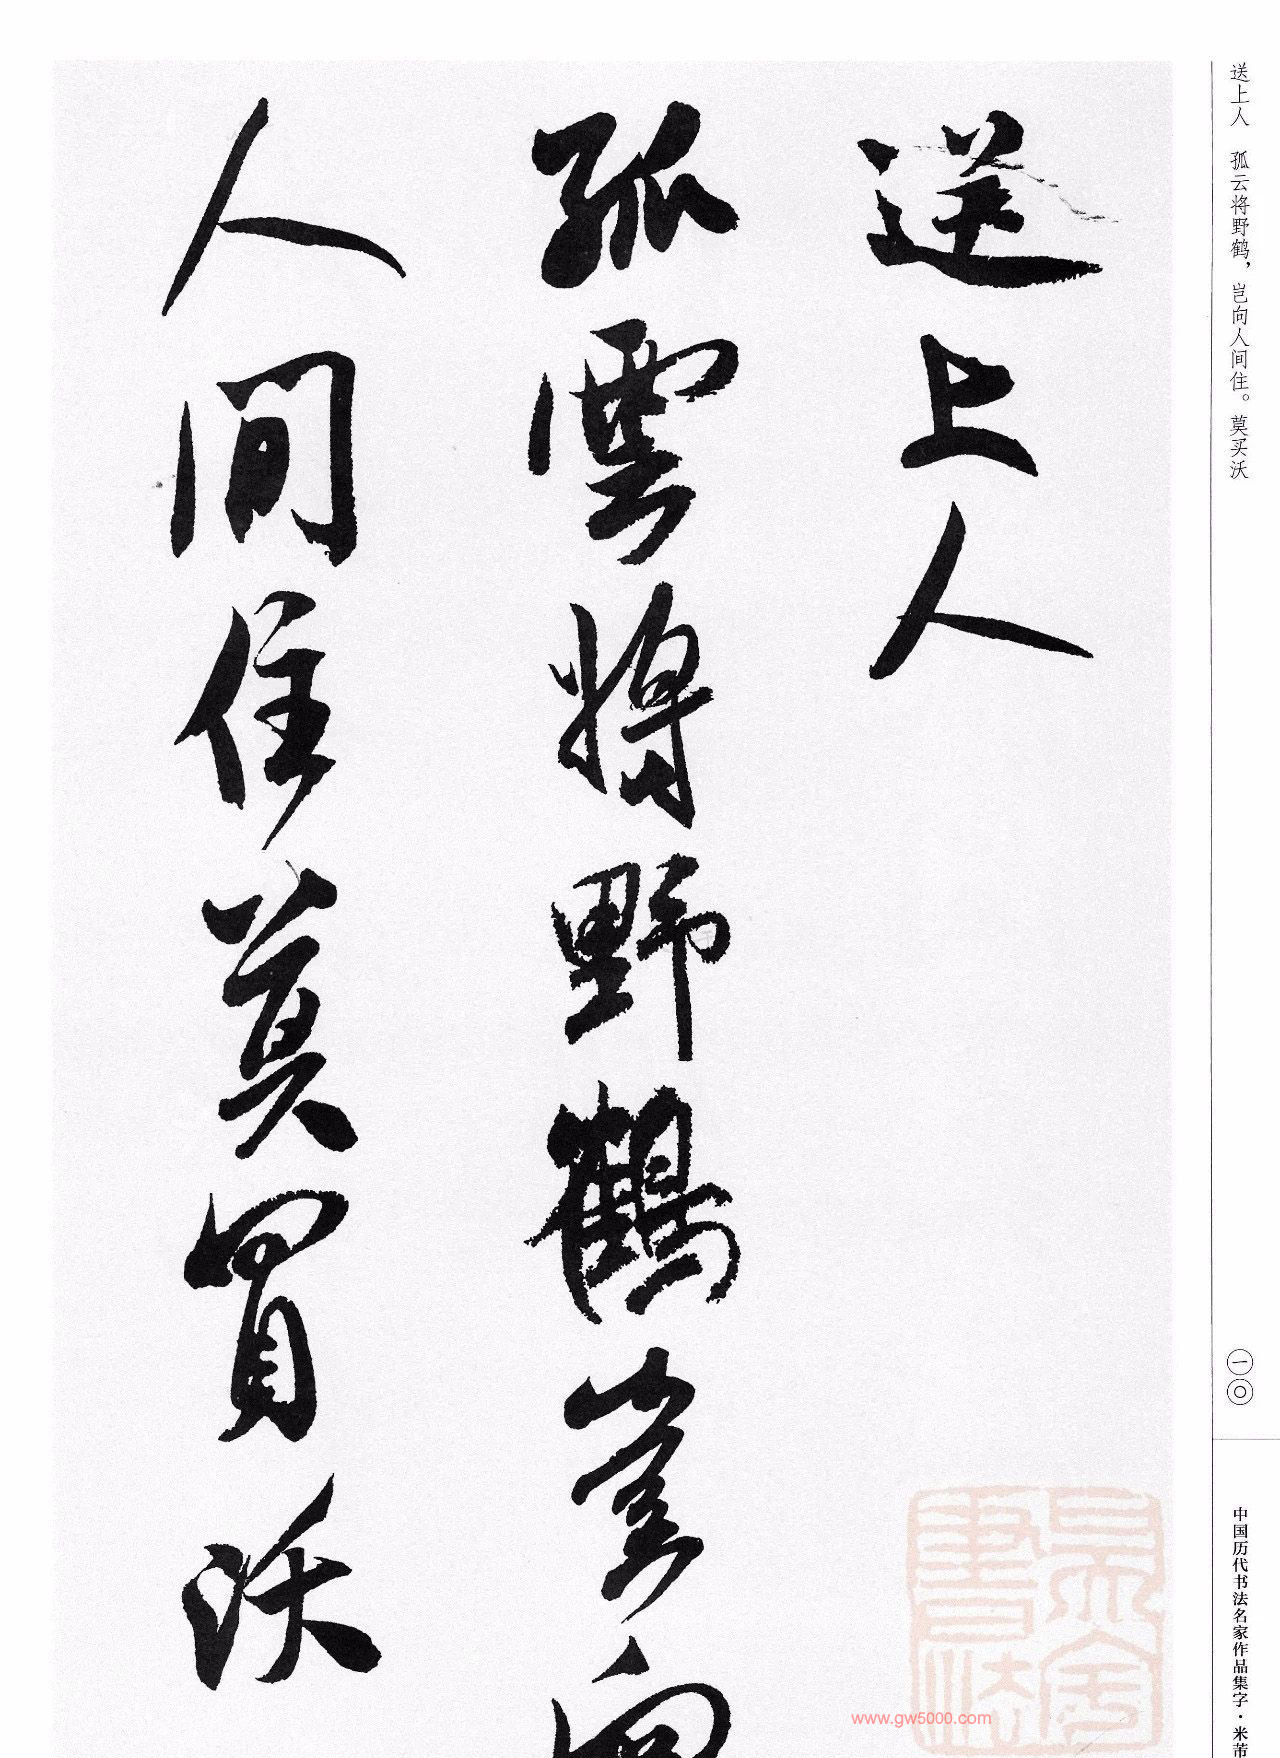 送上人
孤雲將野鶴豈向
人間住莫買沃
送上人　孤云将野鹤，岂向人间住。莫买沃
一〇
中国历代书法名家作品集字·米芾
www.gw5000.com